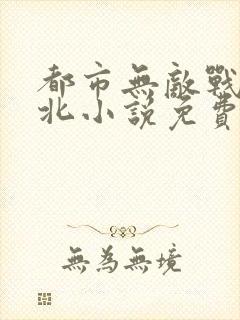 都市無敵戰
北小說免費
無為無境